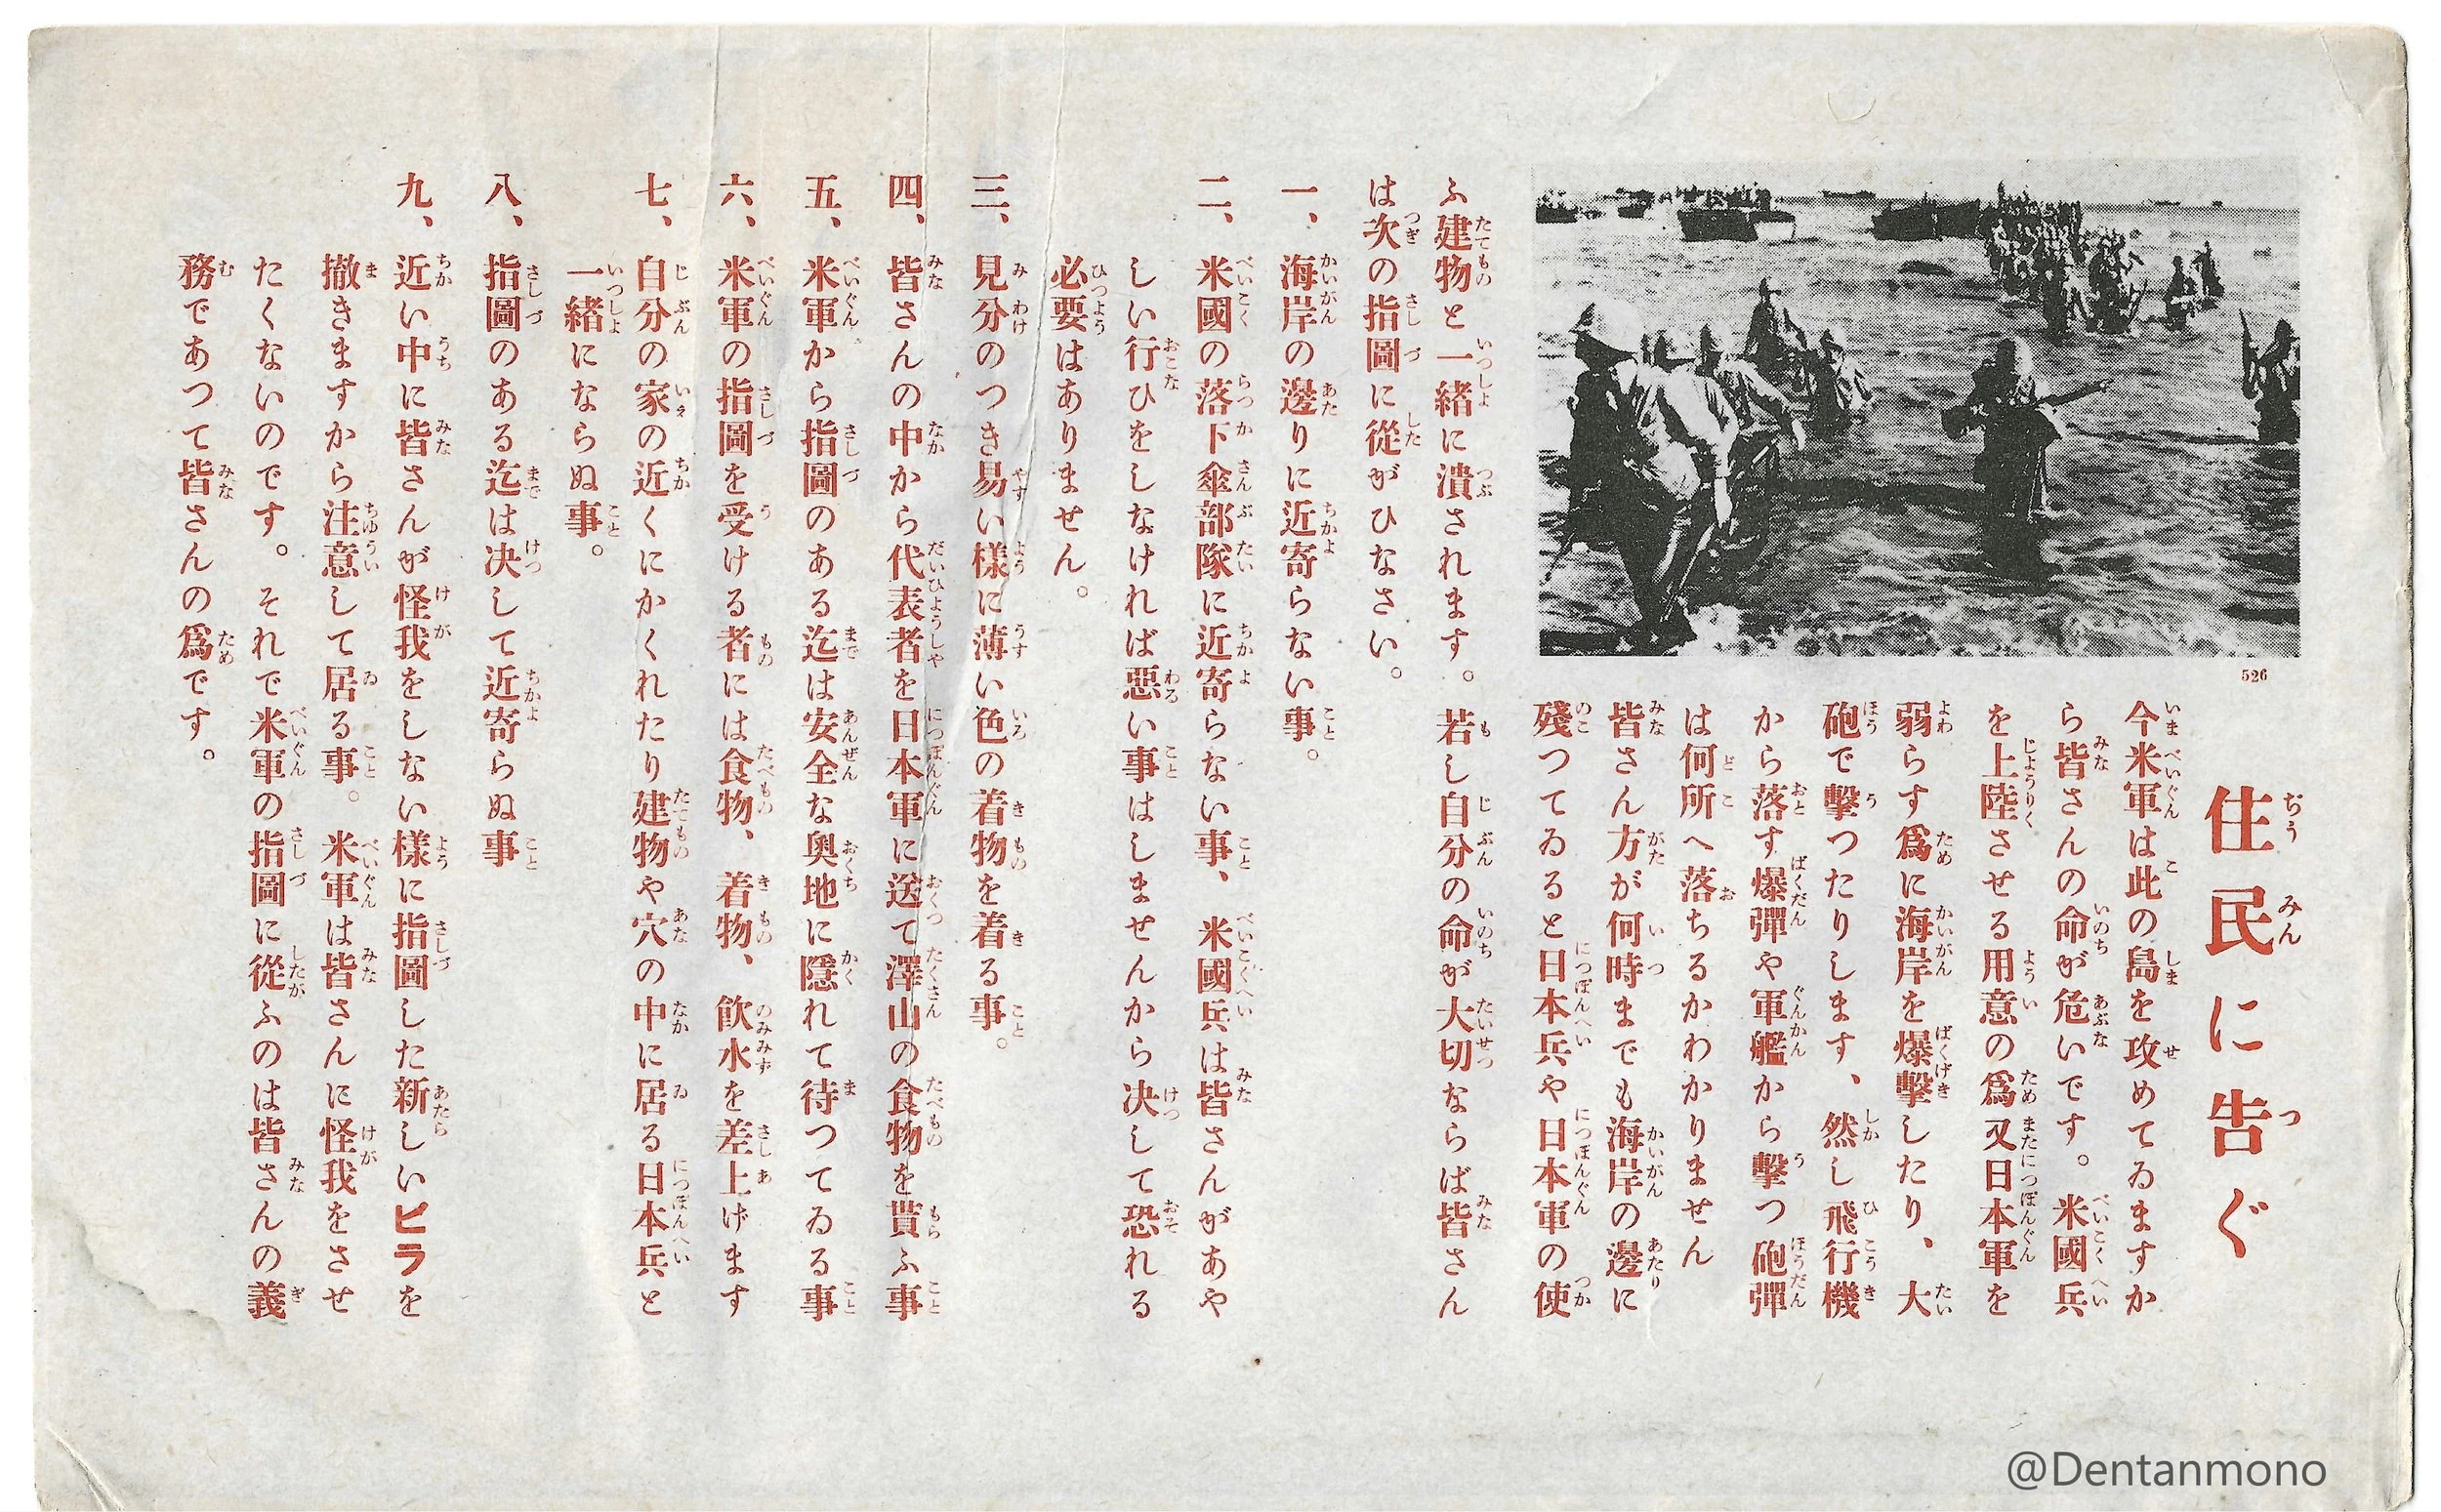 住民に告ぐ
今米軍は此の島を攻めてゐますか
ら皆さんの命が危いです。米國兵
を上陸させる用意の爲又日本軍を
弱らす爲に海岸を爆擊したり、大
砲で擊つたりします、然し飛行機
から落す爆彈や軍艦から擊つ砲彈
は何所へ落ちるかわかりません
皆さん方が何時までも海岸の邊に
殘つてゐると日本兵や日本軍の使
526
ふ建物と一緒に潰されます。若し自分の命が大切ならば皆さん
は次の指圖に從がひなさい。
一、海岸の邊りに近寄らない事。
二、米國の落下傘部隊に近寄らない事、米國兵は皆さんがあや
しい行ひをしなければ惡い事はしませんから决して恐れる
必要はありません。
三、見分のつき易い樣に薄い色の着物を着る事。
四、皆さんの中から代表者を日本軍に送て澤山の食物を貰ふ事
五、米軍から指圖のある迄は安全な奥地に隱れて待つてゐる事
六、米軍の指圖を受ける者には食物、着物、飮水を差上げます
七、自分の家の近くにかくれたり建物や穴の中に居る日本兵と
一緒にならぬ事。
八、指圖のある迄は决して近寄らぬ事
九、近い中に皆さんが怪我をしない樣に指圖した新しいビラを
撒きますから注意して居る事。米軍は皆さんに怪我をさせ
たくないのです。それで米軍の指圖に從ふのは皆さんの義
務であつて皆さんの爲です。
@Dentanmono